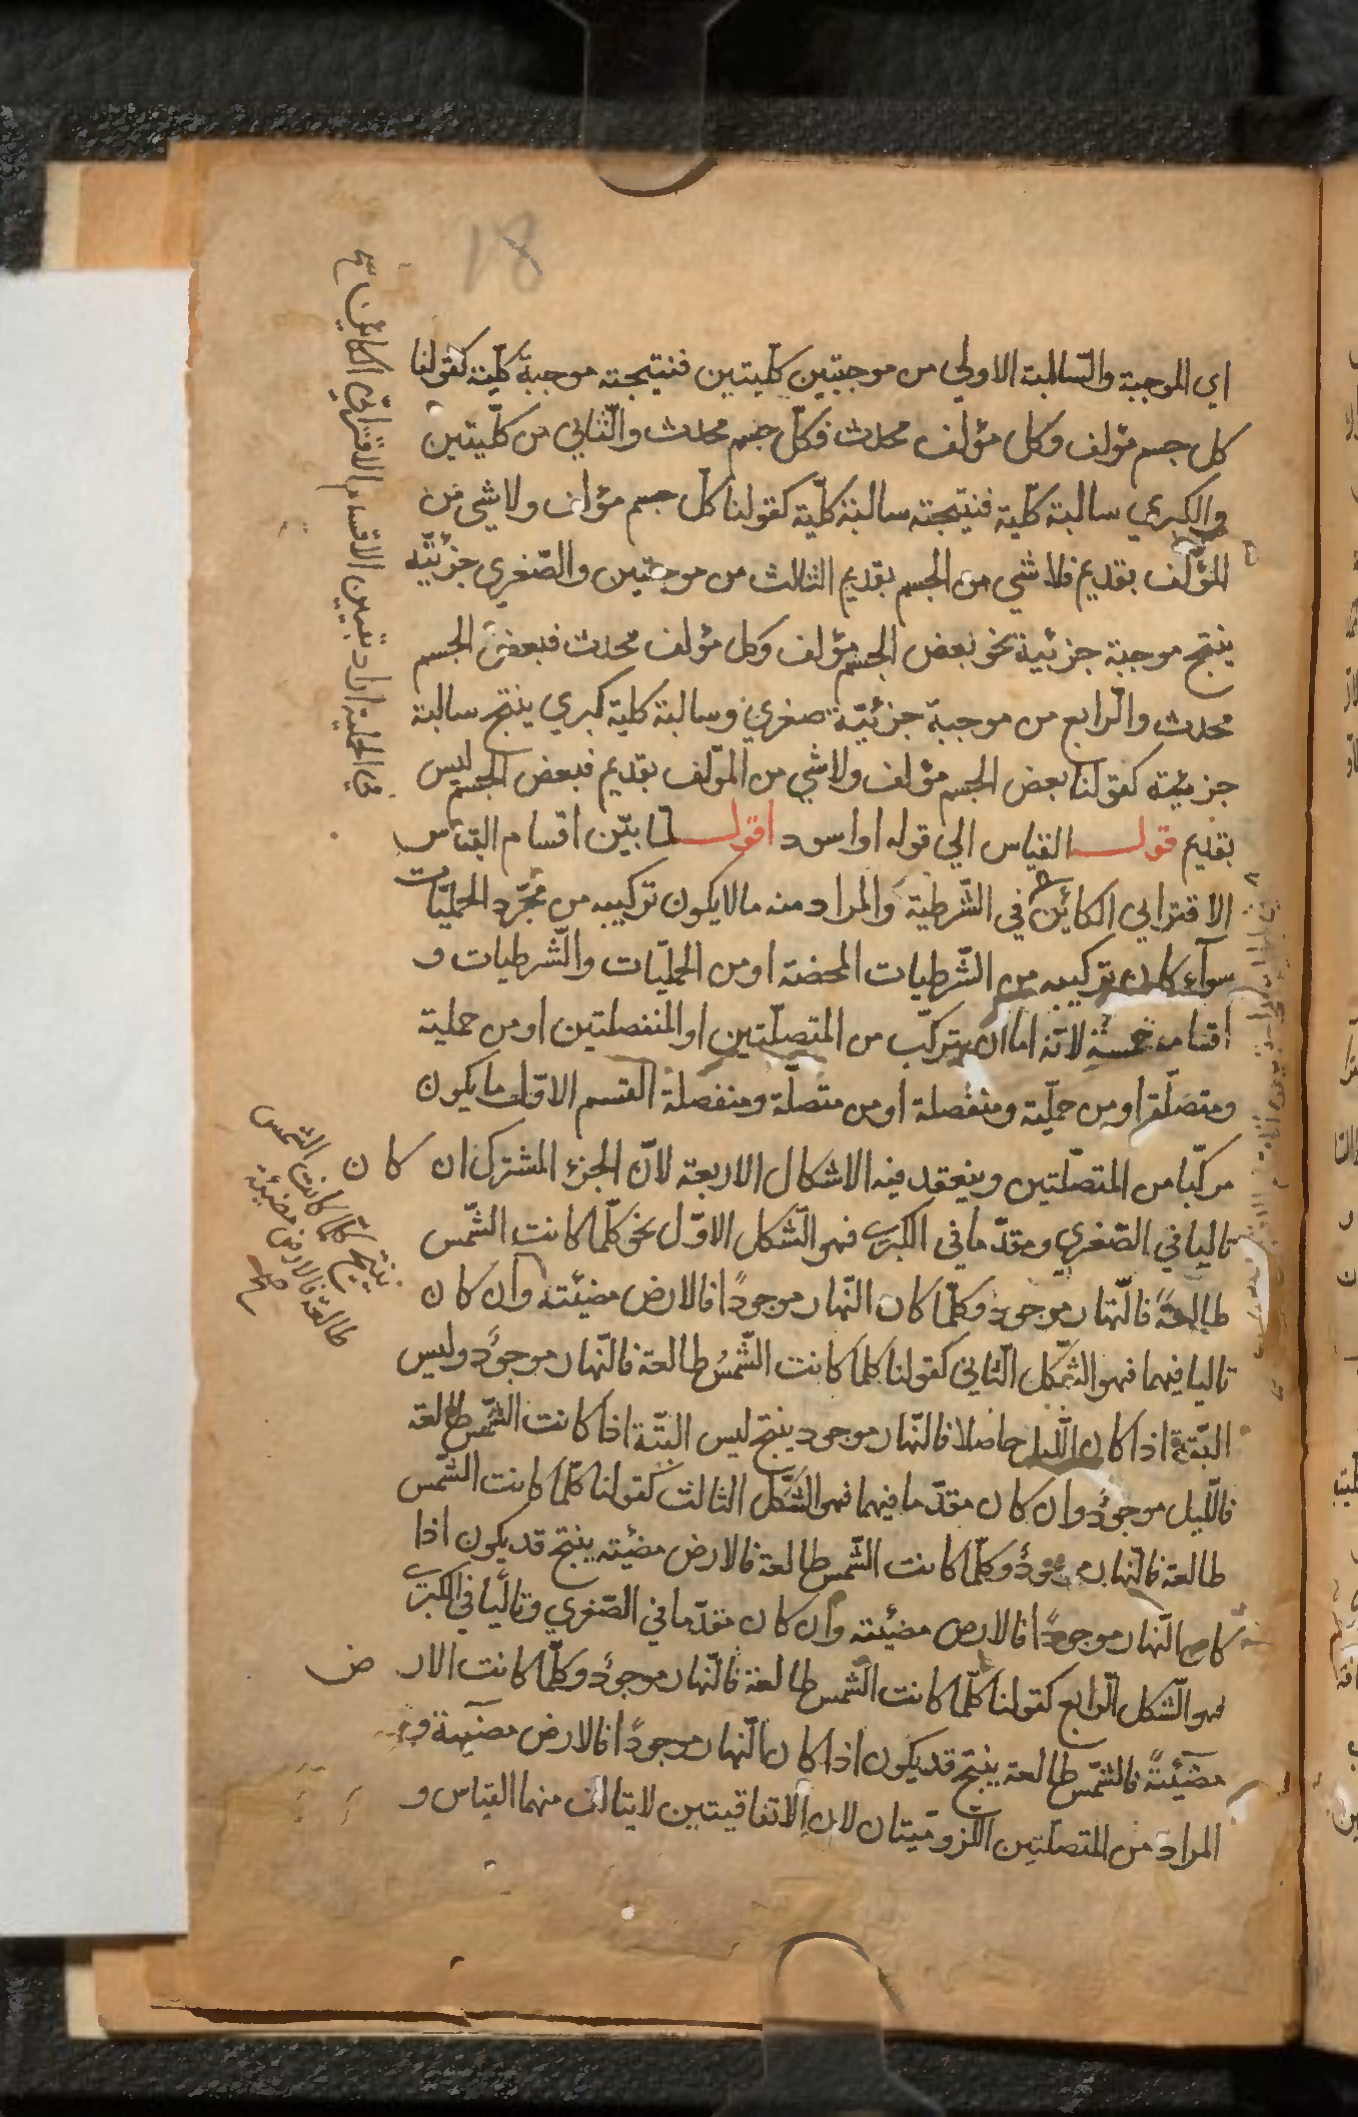 18
اي الموجبة والسالبة الاولي من موجبتين كليتين فنتيجته موجبة كلية كقولنا
كل جسم مؤلف وكل مؤلف محدث فكل جسم محدث والثاني من كليتين
والكبري سالبة كلية فنتيجته سالبة كلية كقولنا كل جسم مؤلف ولا شي من
المؤلف بقديم فلا شي من الجسم بقديم الثالث من موجبتين والصغري جزئية
ينتج موجبة جزئية نحو بعض الجسم مؤلف وكل مؤلف محدث فبعض الجسم
محدث والرابع من موجبة جزئية صغري وسالبة كلية كبري ينتج سالبة
جزئية كقولنا بعض الجسم مؤلف ولا شي من المؤلف بقديم فبعض الجسم ليس
بقديم قولـه القياس الي قوله او اسود اقول لما بيّن اقسام القياس
الاقتراني الكائن في الشّرطية والمراد منه ما لا يكون تركيبه من مجرّد الحمليّات
سوآء كان تركيبه من الشّرطيات المحضة او من الحمليّات والشّرطيات و
اقسامه خمسة لانّه اما ان يتركّب من المتصلّتين او المنفصلتين او من حملية
ومتصلّة او من حمليّة ومنفصلة او من متصلّة ومنفصلة القسم الاوّل ما يكون
مركّبا من المتصلّتين وينعقد فيه الاشكال الاربعة لانّ الجزء المشترك ان كان
تاليا في الصّغري ومقدّما في الكبرى فهو الشّكل الاوّل نحو كلّما كانت الشّمس
طالعةً فالنّهار موجود وكلّما كان النّهار موجودًا فالارض مضيئته وان كان
تاليا فيهما فهو الشّكل الثّاني كقولنا كلما كانت الشّمس طالعة فالنّهار موجودٌ وليس
البتّة اذا كان اللّيل حاصلا فالنّهار موجود ينتج ليس البتّة اذا كانت الشّمس طالعة
فاللّيل موجودٌ وان كان مقدّما فيهما فهو الشّكل الثالث كقولنا كلّما كانت الشّمس
طالعة فالنّهار موجودٌ وكلّما كانت الشّمس طالعة فالارض مضيئته ينتج قد يكون اذا
كان النّهار موجودًا فالارض مضيئته وان كان مقدّما في الصّغري وتاليًا في الكبرى
فهو الشّكل الرّابع كقولنا كلّما كانت الشّمس طالعة فالنّهار موجودٌ وكلّما كانت الارض
مضيئةً فالشّمس طالعة ينتج قد يكون اذا كان النّهار موجودًا فالارض مضيئة و
المراد من المتصلّتين اللّزوميّتان لان الاتفاقيتين لا يتالف منهما القياس و
من الحملية اراد تبيين الاقسام الاقتراني الكائن صح
ينتج كلما كانت الشمس
طالعة فالارض مضيئة
صح